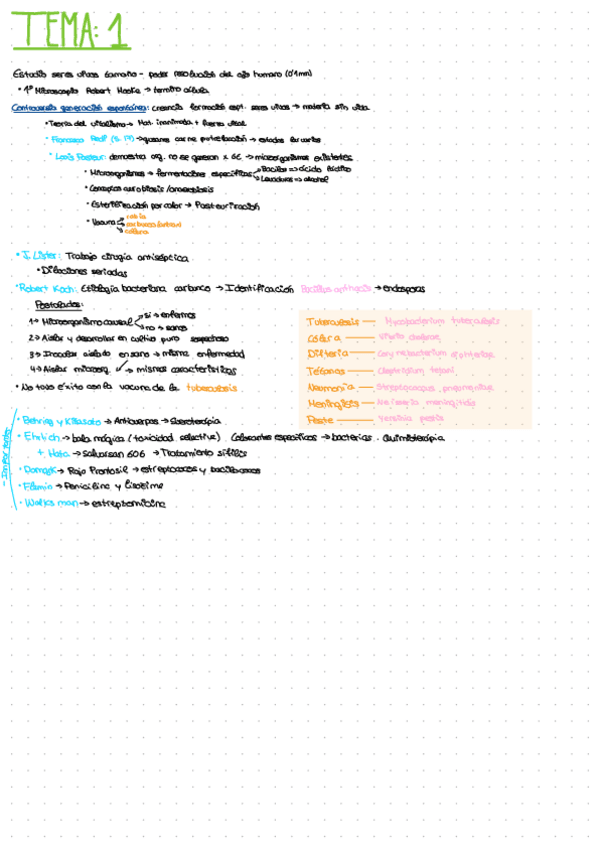 TEMA: 1
Estudio seres vivos tamaño - poder resolución del ojo humano (0'1mm)
• 1º Microscopio Robert Hooke → termino célula
Controversia generación espontánea: creencia formación espt. seres vivos → materia sin vida.
• Teoría del vitalismo → Mat. inanimada + fuerza vital
• Francesco Redi (s. 17) → gusanos carne putrefacción → estados larvarios
• Louis Pasteur: demuestra org. no se generan x GE → microorganismos existentes
• Microorganismos → fermentaciones específicas
Bacilos => ácido láctico
Levaduras => alcohol
• Conceptos aerobiosis/anaerobiosis
• Esterilización por calor → Pasteurización
• Vacuna
rabia
carbunco
cólera
• J. Lister: Trabajo cirugía antiséptica
• Diluciones seriadas
• Robert Koch: Etiología bacteriana carbunco → Identificación Bacillus anthracis → endosporas
Postulados:
1 → Microorganismo causal
si → enfermos
no → sanos
2 → Aislar y desarrollar en cultivo puro sospechoso
3 → Inocular aislado en sano → misma enfermedad
4 → Aislar microorg. → mismas características
• No tuvo éxito con la vacuna de la tuberculosis.
Tuberculosis — Mycobacterium tuberculosis
Cólera — Vibrio cholerae
Difteria — Corynebacterium diphtheriae
Tétanos — Clostridium tetani
Neumonía — Streptococcus pneumoniae
Meningitis — Neisseria meningitidis
Peste — Yersinia pestis
- Importantes
• Behring y Kitasato → Anticuerpos → Sueroterapia
• Ehrlich → bala mágica (toxicidad selectiva). Colorantes específicos → bacterias. Quimioterapia
+ Hata → salvarsan 606 → Tratamiento sífilis
• Domagk → Rojo Prontosil → estreptococos y
• Fleming → Penicilina y lisozima
• Waksman → estreptomicina